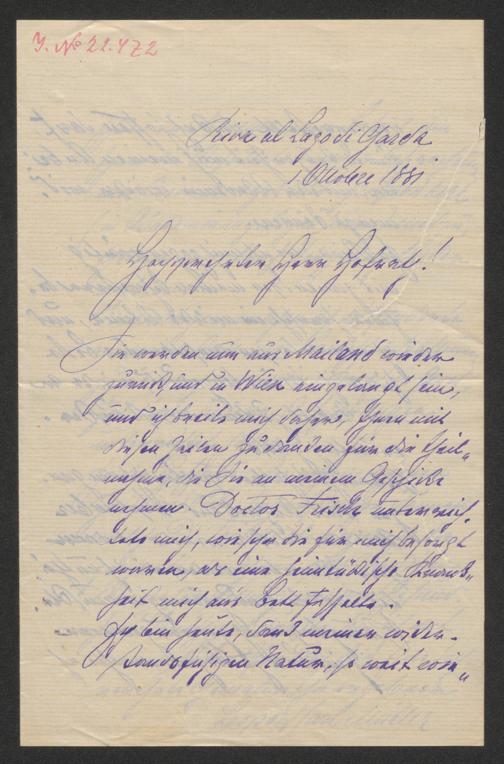 J. No 22.472
Riva al Lago di Garda
1 Ottobre 1881
Hochgeehrter Herr Hofrath!
Sie werden nun aus Mailand wieder
zurück und in Wien eingelangt sein,
und ich beeile mich daher, Ihnen mit
diesen Zeilen zu danken für die Theil„
nahme, die Sie an meinem Geschicke
nehmen. Doctor Frisch unterrich„
tete mich, wie sehr Sie für mich besorgt
waren, als eine heimtückische Krank„
heit mich an's Bett fesselte.
Ich bin heute, Dank meiner wider-
standsfähigen Natur, so weit wie„